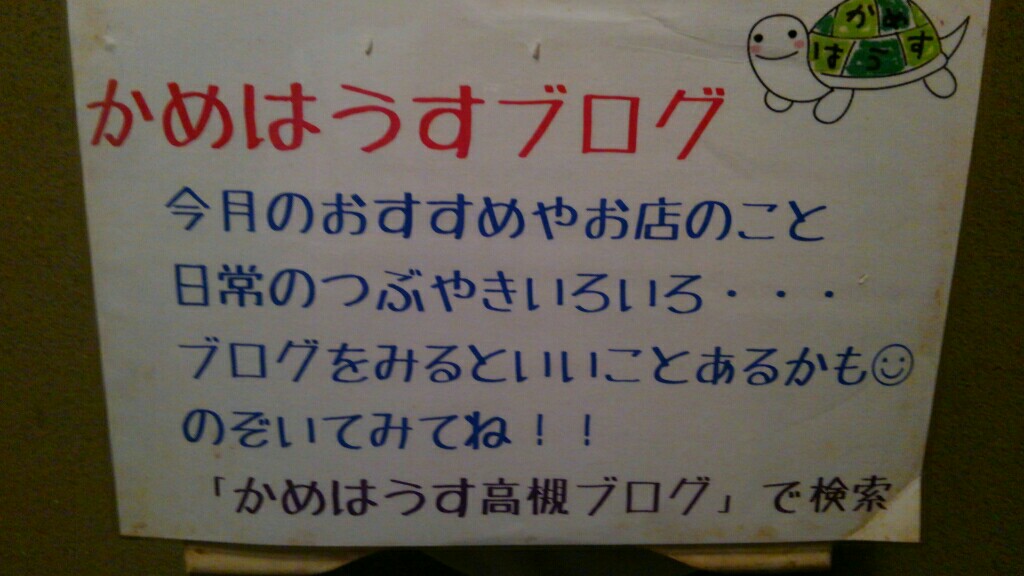 かめ
はうす
かめはうすブログ
今月のおすすめやお店のこと
日常のつぶやきいろいろ・・・
ブログをみるといいことあるかも☺
のぞいてみてね！！
「かめはうす高槻ブログ」で検索